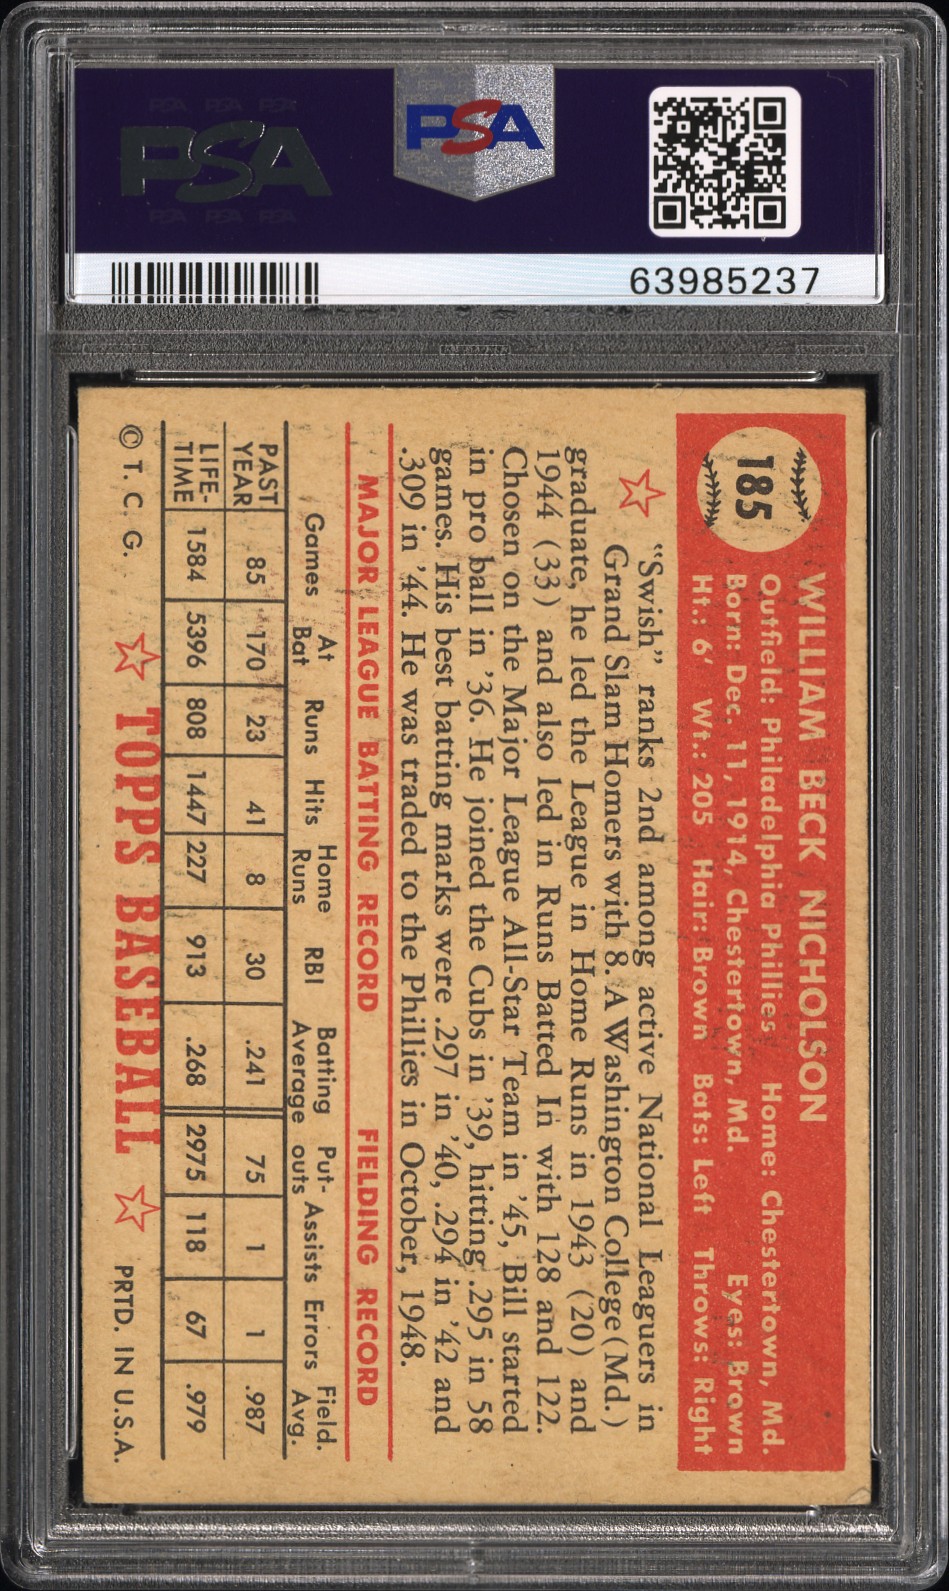 PSA PSA PSA
PSA
PSA PSA PSA
PSA
63985237
185
WILLIAM BECK NICHOLSON
Outfield: Philadelphia Phillies Home: Chestertown, Md.
Born: Dec. 11, 1914, Chestertown, Md. Eyes: Brown
Ht.: 6′ Wt.: 205 Hair: Brown Bats: Left Throws: Right
“Swish” ranks 2nd among active National Leaguers in
Grand Slam Homers with 8. A Washington College (Md.)
graduate, he led the League in Home Runs in 1943 (20) and
1944 (33) and also led in Runs Batted In with 128 and 122.
Chosen on the Major League All-Star Team in ’45, Bill started
in pro ball in ’36. He joined the Cubs in ’39, hitting .295 in 58
games. His best batting marks were .297 in ’40, .294 in ’42 and
.309 in ’44. He was traded to the Phillies in October, 1948.
MAJOR LEAGUE BATTING RECORD FIELDING RECORD
Games At Bat Runs Hits Home Runs RBI Batting Average Put-outs Assists Errors Field. Avg.
PAST YEAR 85 170 23 41 8 30 .241 75 1 1 .987
LIFE-TIME 1584 5396 808 1447 227 913 .268 2975 118 67 .979
© T. C. G. TOPPS BASEBALL PRTD. IN U.S.A.